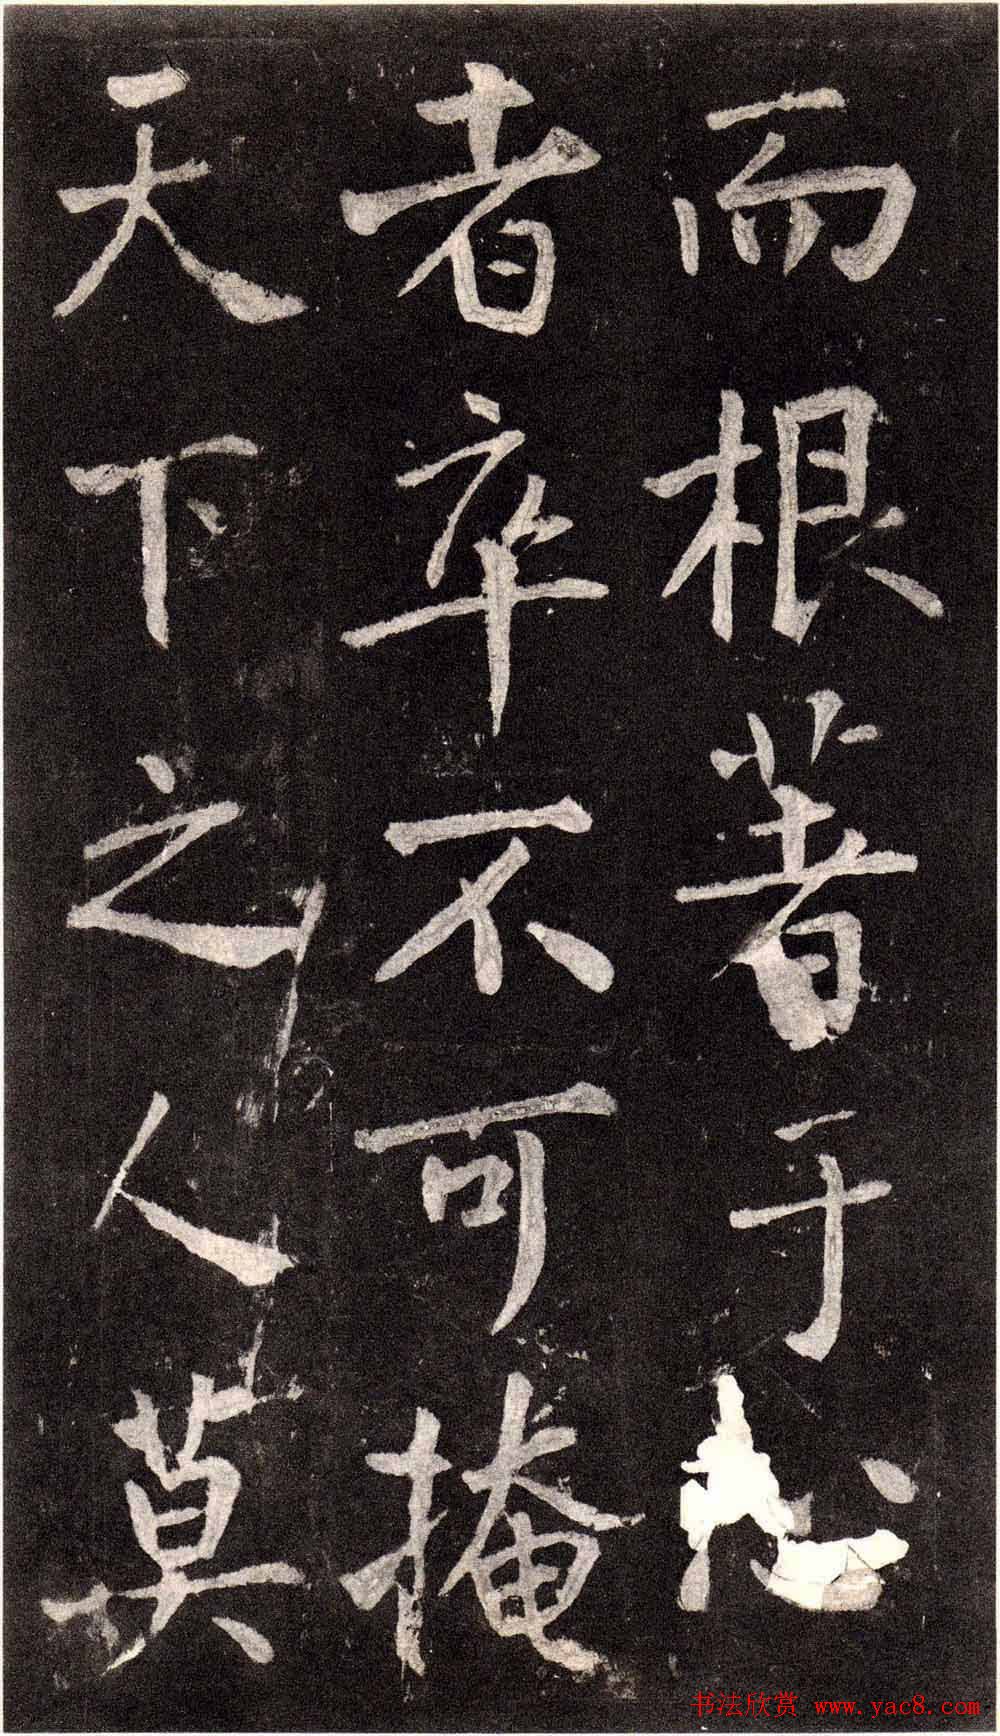 而根著于心
者卒不可掩
天下之人莫
书法欣赏 www.yac8.com